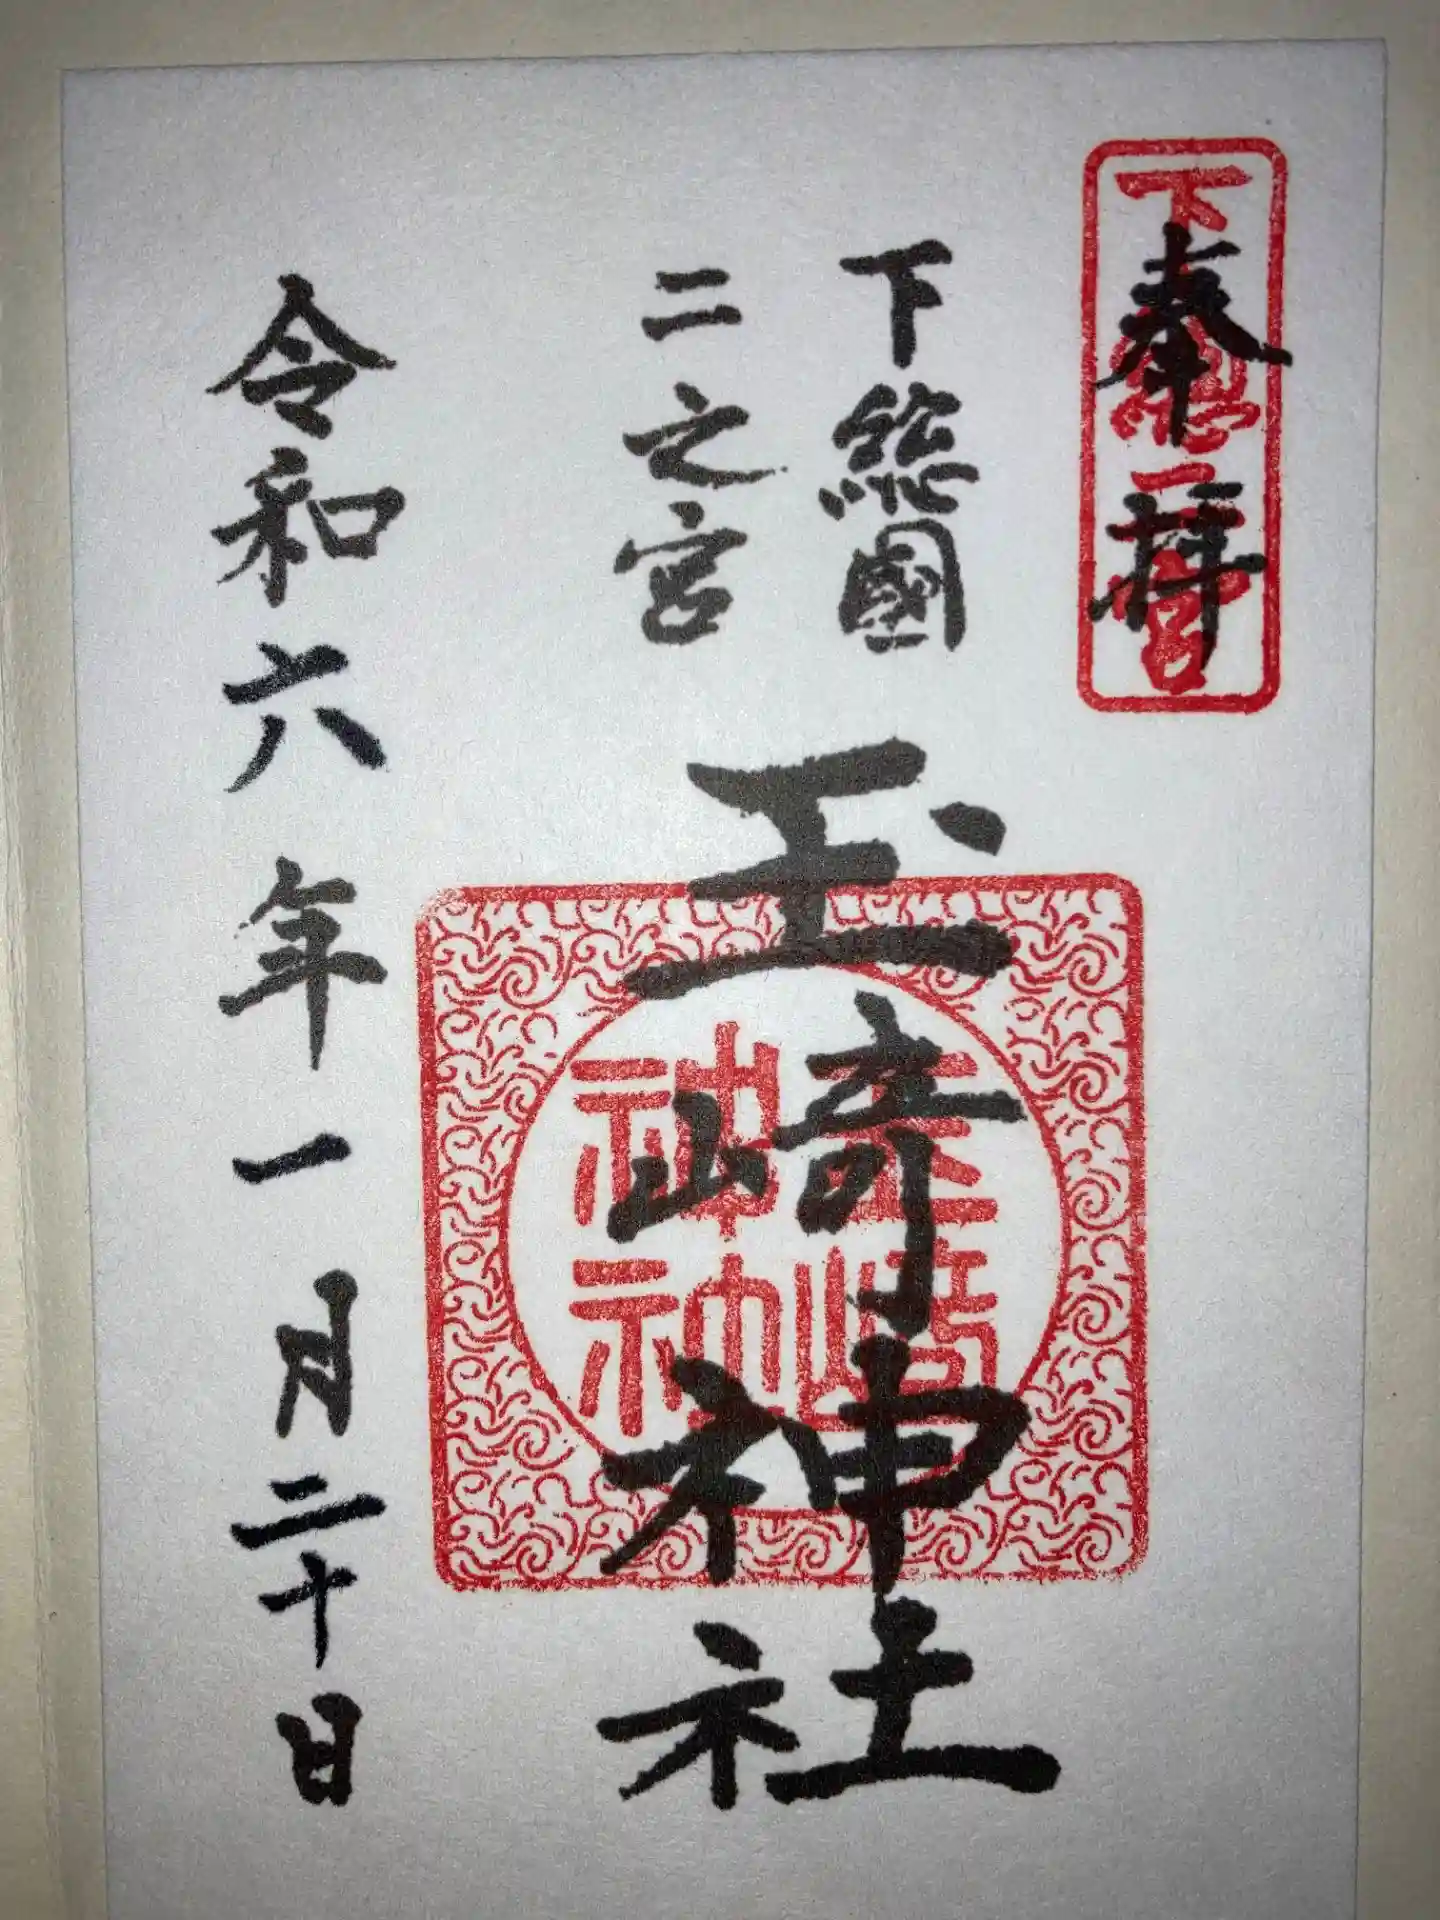 奉拝
下総二宮
下総國
二之宮
玉﨑神社
玉﨑神社
令和六年一月二十日